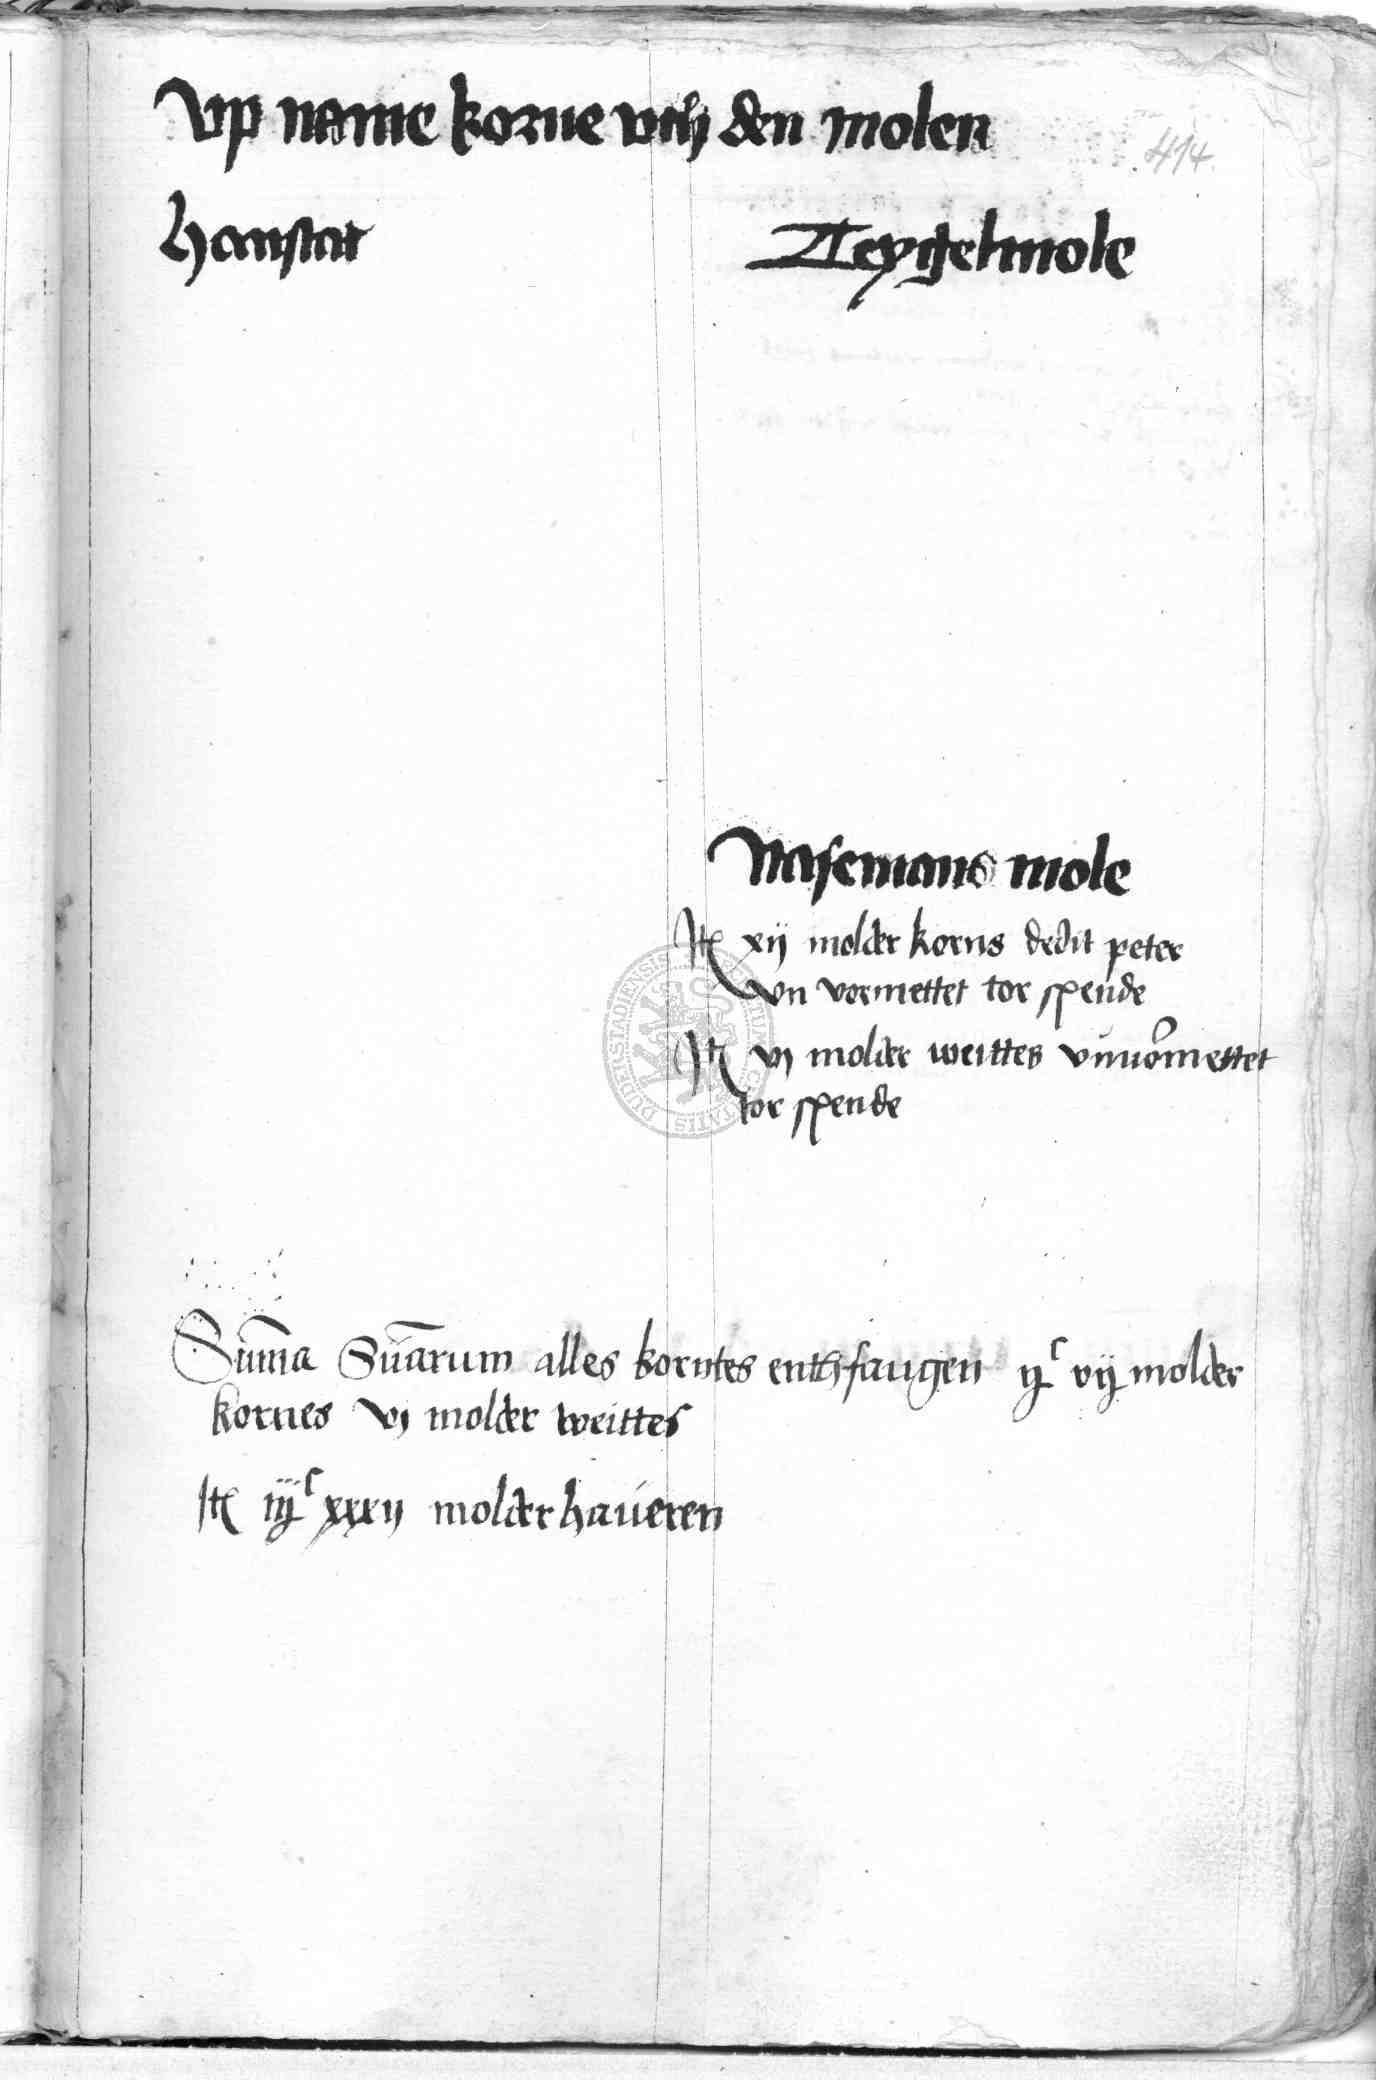 Vp name korne vth den molen
414.
Hanstat
Zteygelmole
Nasemans mole
Jt xij molder korns dedit peter
vn vormettet tor spende
Jt vj molder weittes vnuormettet
tor spende
Sum̄a Sūarum alles korntes enthfangen ijc vij molder
kornes vj molder weittes
Jt iijc xxxij molder haueren